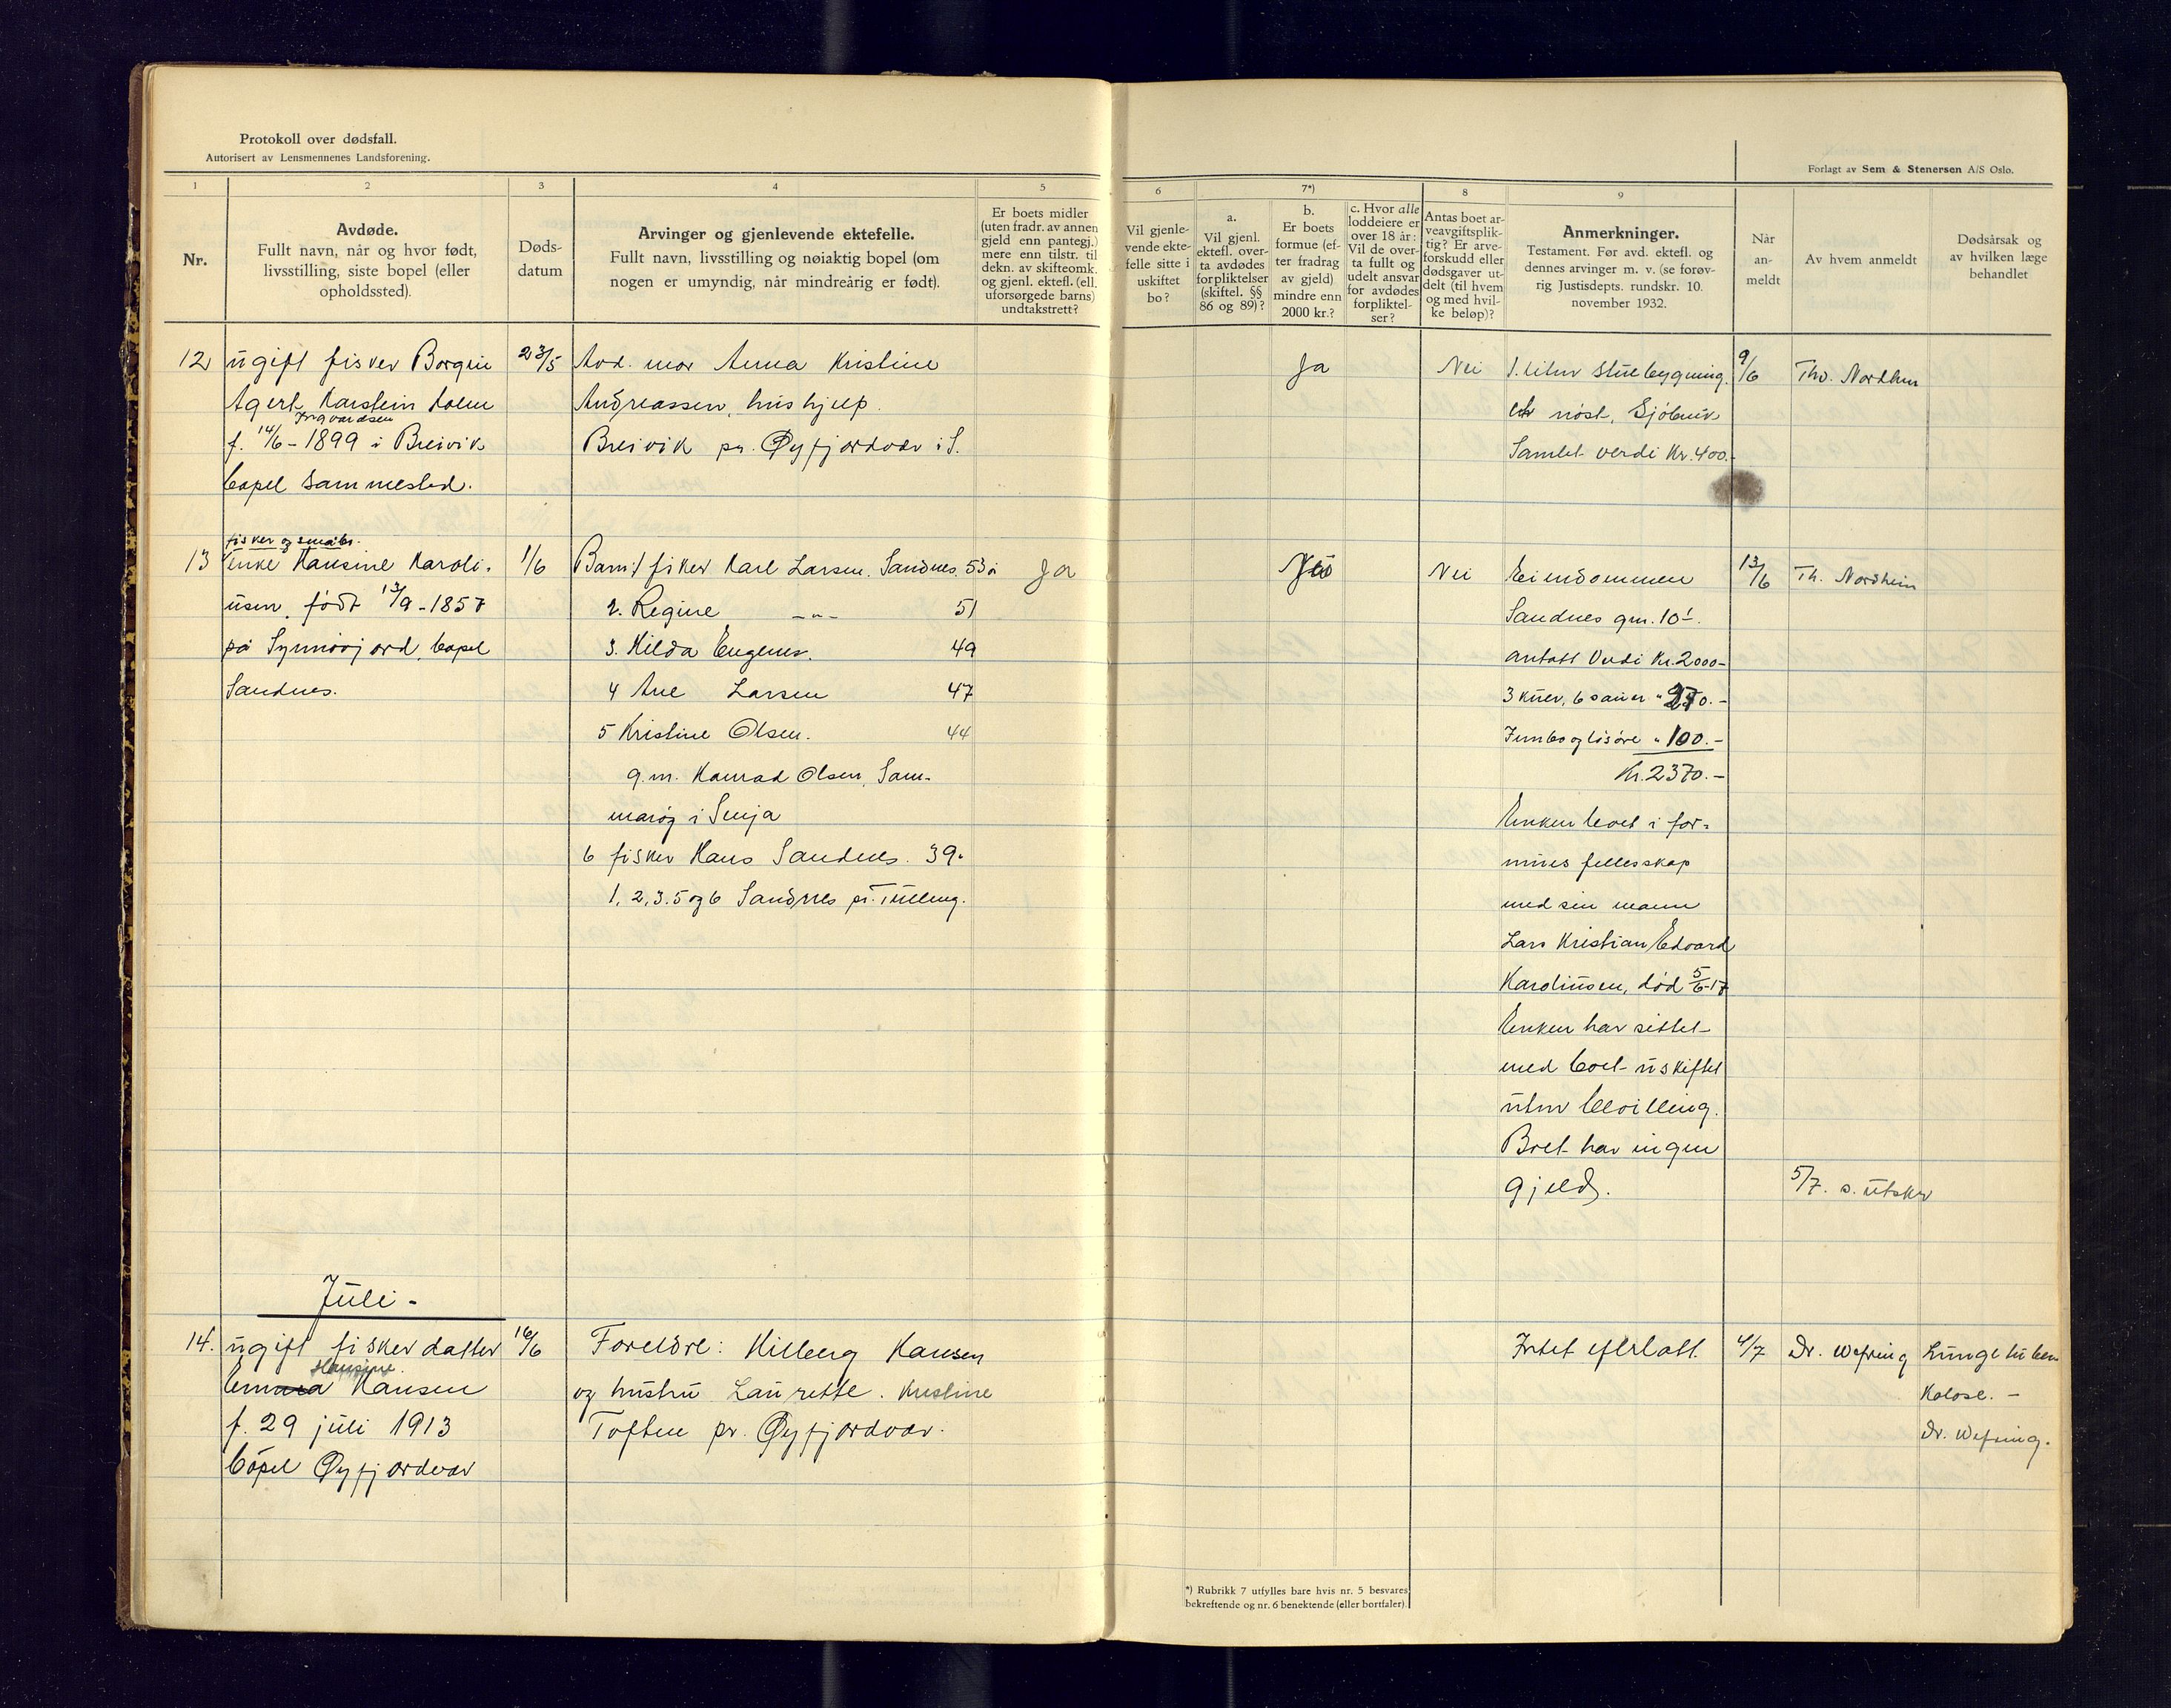 Protokoll over dødsfall.
Autorisert av Lensmennenes Landsforening.
Forlagt av Sem & Stenersen A/S Oslo.
1
2
3
4
5
6
7*)
8
9
Nr.
Avdøde.
Fullt navn, når og hvor født,
livsstilling, siste bopel (eller
opholdssted).
Døds-
datum
Arvinger og gjenlevende ektefelle.
Fullt navn, livsstilling og nøiaktig bopel (om
nogen er umyndig, når mindreårig er født).
Er boets midler
(uten fradr. av annen
gjeld enn pantegj.)
mere enn tilstr. til
dekn. av skifteomk.
og gjenl. ektefl. (ell.
uforsørgede barns)
undtakstrett?
Vil gjenle-
vende ekte-
felle sitte i
uskiftet
bo?
a.
Vil gjenl.
ektefl. over-
ta avdødes
forpliktelser
(skiftel. §§
86 og 89)?
b.
Er boets
formue (ef-
ter fradrag
av gjeld)
mindre enn
2000 kr.?
c. Hvor alle
loddeiere er
over 18 år:
Vil de over-
ta fullt og
udelt ansvar
for avdødes
forpliktel-
ser?
Antas boet ar-
veavgiftsplik-
tig? Er arve-
forskudd eller
dødsgaver ut-
delt (til hvem
og med hvil-
ke beløp)?
Anmerkninger.
Testament. Før avd. ektefl. og
dennes arvinger m. v. (se forøv-
rig Justisdepts. rundskr. 10.
november 1932.
Når
an-
meldt
Av hvem anmeldt
Dødsårsak og
av hvilken læge
behandlet
12
ugift fisker
Agert Karstein
Ingvardsen
f. 14/6 - 1899 i Breivik
bopel sammested.
23/5
Avd. mor Anna Kristine
Andreassen, hushjelp.
Breivik pr. Øyfjordvær i S.
Ja
Nei
1. liten stuebygning.
nøst, Sjöbruk
Samlet verdi Kr. 400.-
9/6
Tho. Nordhein
13
fisker og småbr.
enke Hansine Karoli-
usen, født 13/9 - 1857
på Synnøjord, bopel
Sandnes.
1/6
Barn: 1 fisker Karl Larsen. Sandnes. 53 å
2. Regine -"- 51
3. Hilda Eugenes. 49
4 Ane Larsen 47
5 Kristine Olsen. 44
g.m. Konrad Olsen, Sam-
marøy i Senja
6 fisker Hans Sandnes. 39.
1, 2, 3. 5 og 6 Sandnes pr. Tülleng.
Ja
Nei
Eiendommen
Sandnes gnr. 10
antatt Verdi Kr. 2000-
3 kuer, 6 sauer " 270.-
Innbo og løsøre " 100.-
Kr. 2370.-
Enken levet i for-
mues fellesskap
med sin mann
Lars Kristian Edvard
Karoliusen, død 5/6-17
Enken har sittet
med boet uskiftet
uten bevilling.
Boet har ingen
gjeld.
13/6
Th. Nordhein
5/7. s. utskr
Juli -
14.
ugift fisker datter
Hansine.
Emma Hansen
f. 29 juli 1913
bopel Øyfjordvær
16/6
Foreldre: Hilberg Hansen
og hustru Laurette. Kristine
Toften pr. Øyfjordvær.
Intet efterlatt.
4/7
Dr. Wefring
Lunge tuber-
kolose. -
Dr. Wefring.
*) Rubrikk 7 utfylles bare hvis nr. 5 besvares
bekreftende og nr. 6 benektende (eller bortfaler).